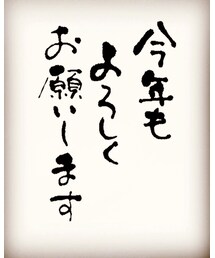 今年も
よろしく
お願いします